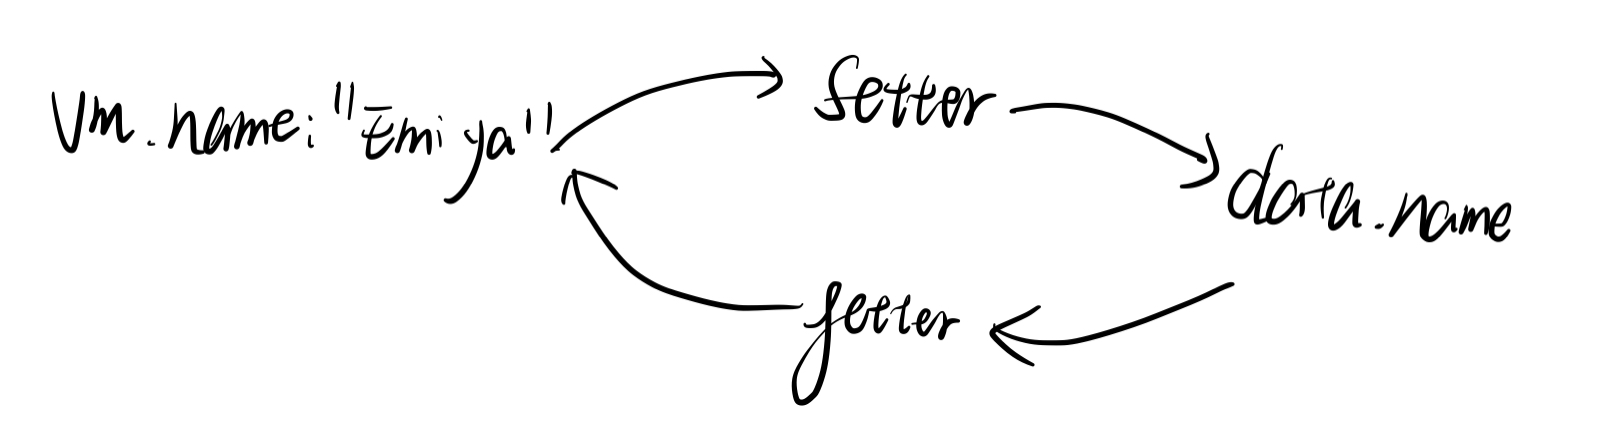 vm.name:"Emiya"
setter
data.name
getter